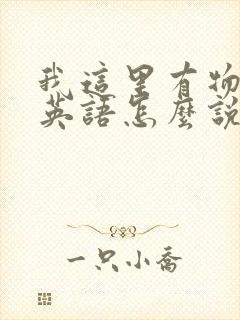 我這里有物
英語怎麼說
一只小喬